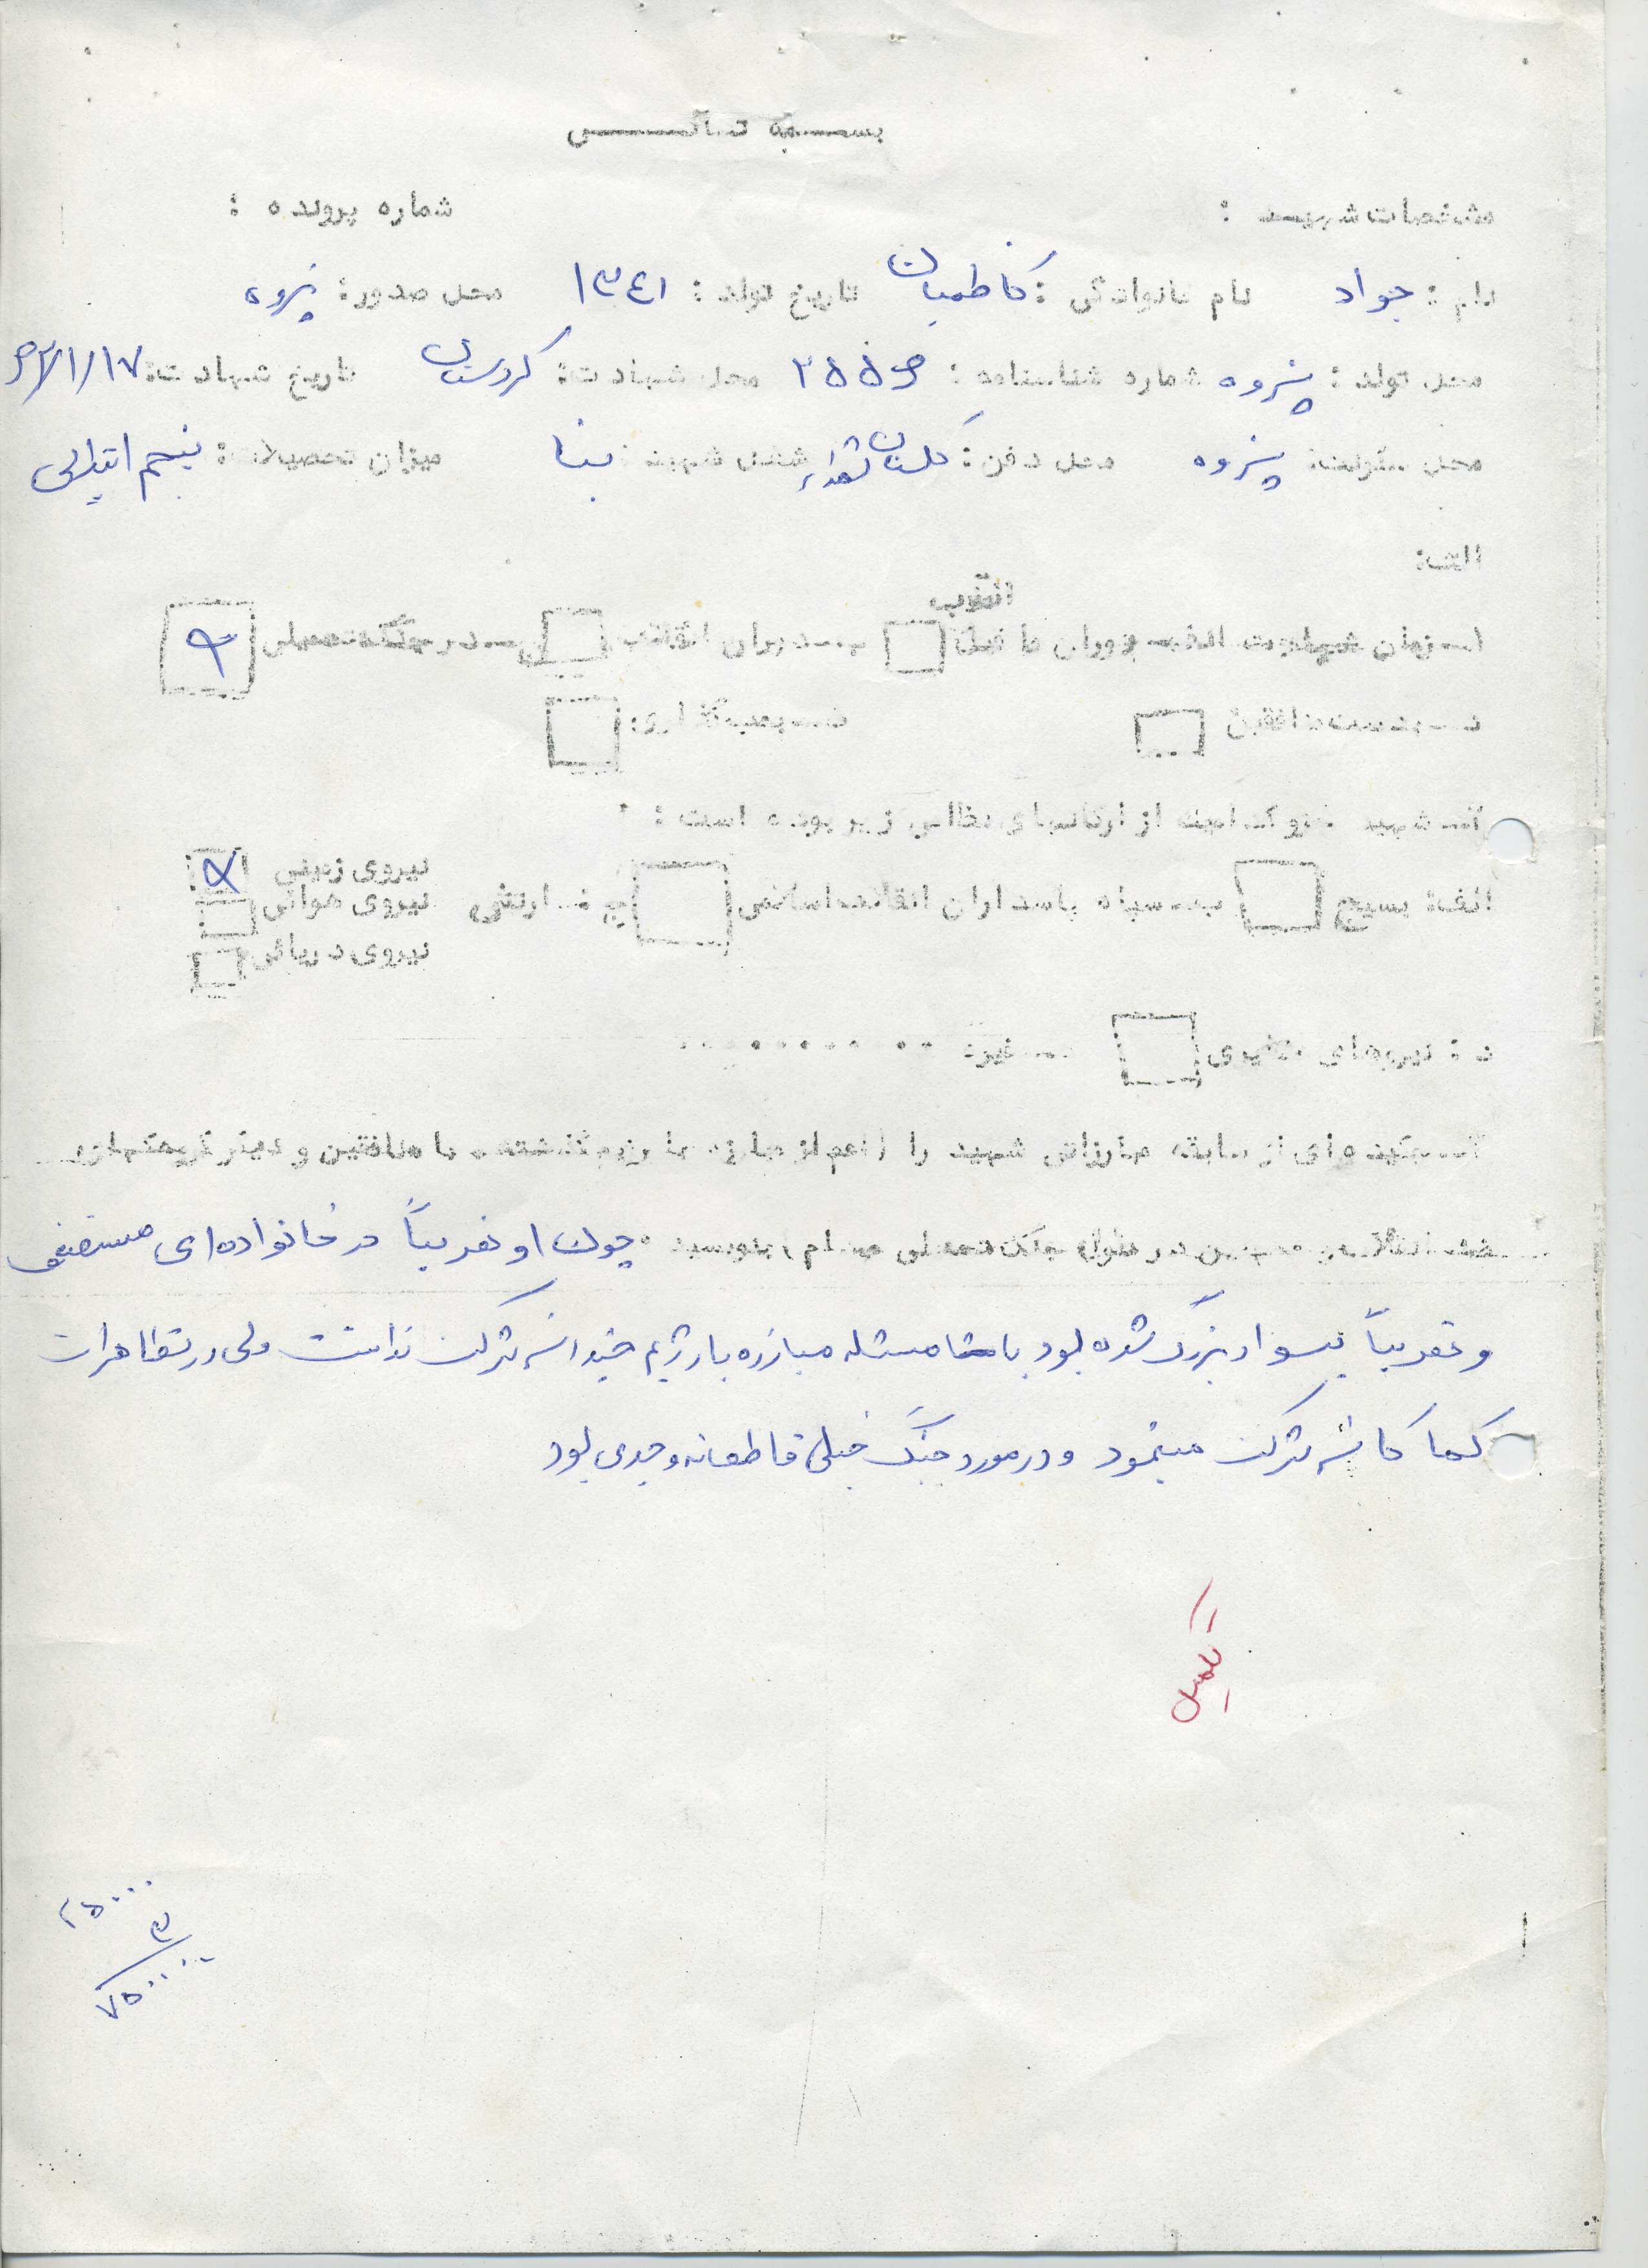 بسمه تعالی
مشخصات شهید : شماره پرونده :
نام : جواد نام خانوادگی : کاظمیان تاریخ تولد : ۱۳٤۱ محل صدور : پزوه
محل تولد : پزوه شماره شناسنامه : محل شهادت : کردستان تاریخ شهادت : ۶۲/۱/۱۷
محل سکونت : پزوه محل دفن : گلستان شهداء شغل شهید : بنا میزان تحصیلات : پنجم ابتدایی
الف:
انقلاب
۱ـ زمان شهادت الف ـ دوران ما قبل ب ـ دوران انقلاب ج ـ در جنگ تحمیلی
د ـ بدست منافقین ذ ـ بمب گذاری :
۲ـ شهید جزو کدامیک از ارگانهای نظامی زیر بوده است :
نیروی زمینی
الف : بسیج ب ـ سپاه پاسداران انقلاب اسلامی ج : ارتش نیروی هوائی
نیروی دریائی
د : نیروهای مردمی غیره ..........
۳ـ چکیده ای از سابقه مبارزاتی شهید را ( اعم از مبارزه با رژیم گذشته ـ با منافقین و دیگر گروهکهای
ضد انقلاب و همچنین در طول جنگ تحمیلی صدام ) بنویسید . چون او تقریباً در خانواده ای مستضعف
و تقریباً بیسواد بزرگ شده بود با مسئله مبارزه با رژیم چندانی شرکت نداشت ولی در تظاهرات
کماکان شرکت مینمود و در مورد جنگ خیلی قاطعانه و جدی بود
تکمیل
۲۵۰۰۰
۳
۷۵۰۰۰